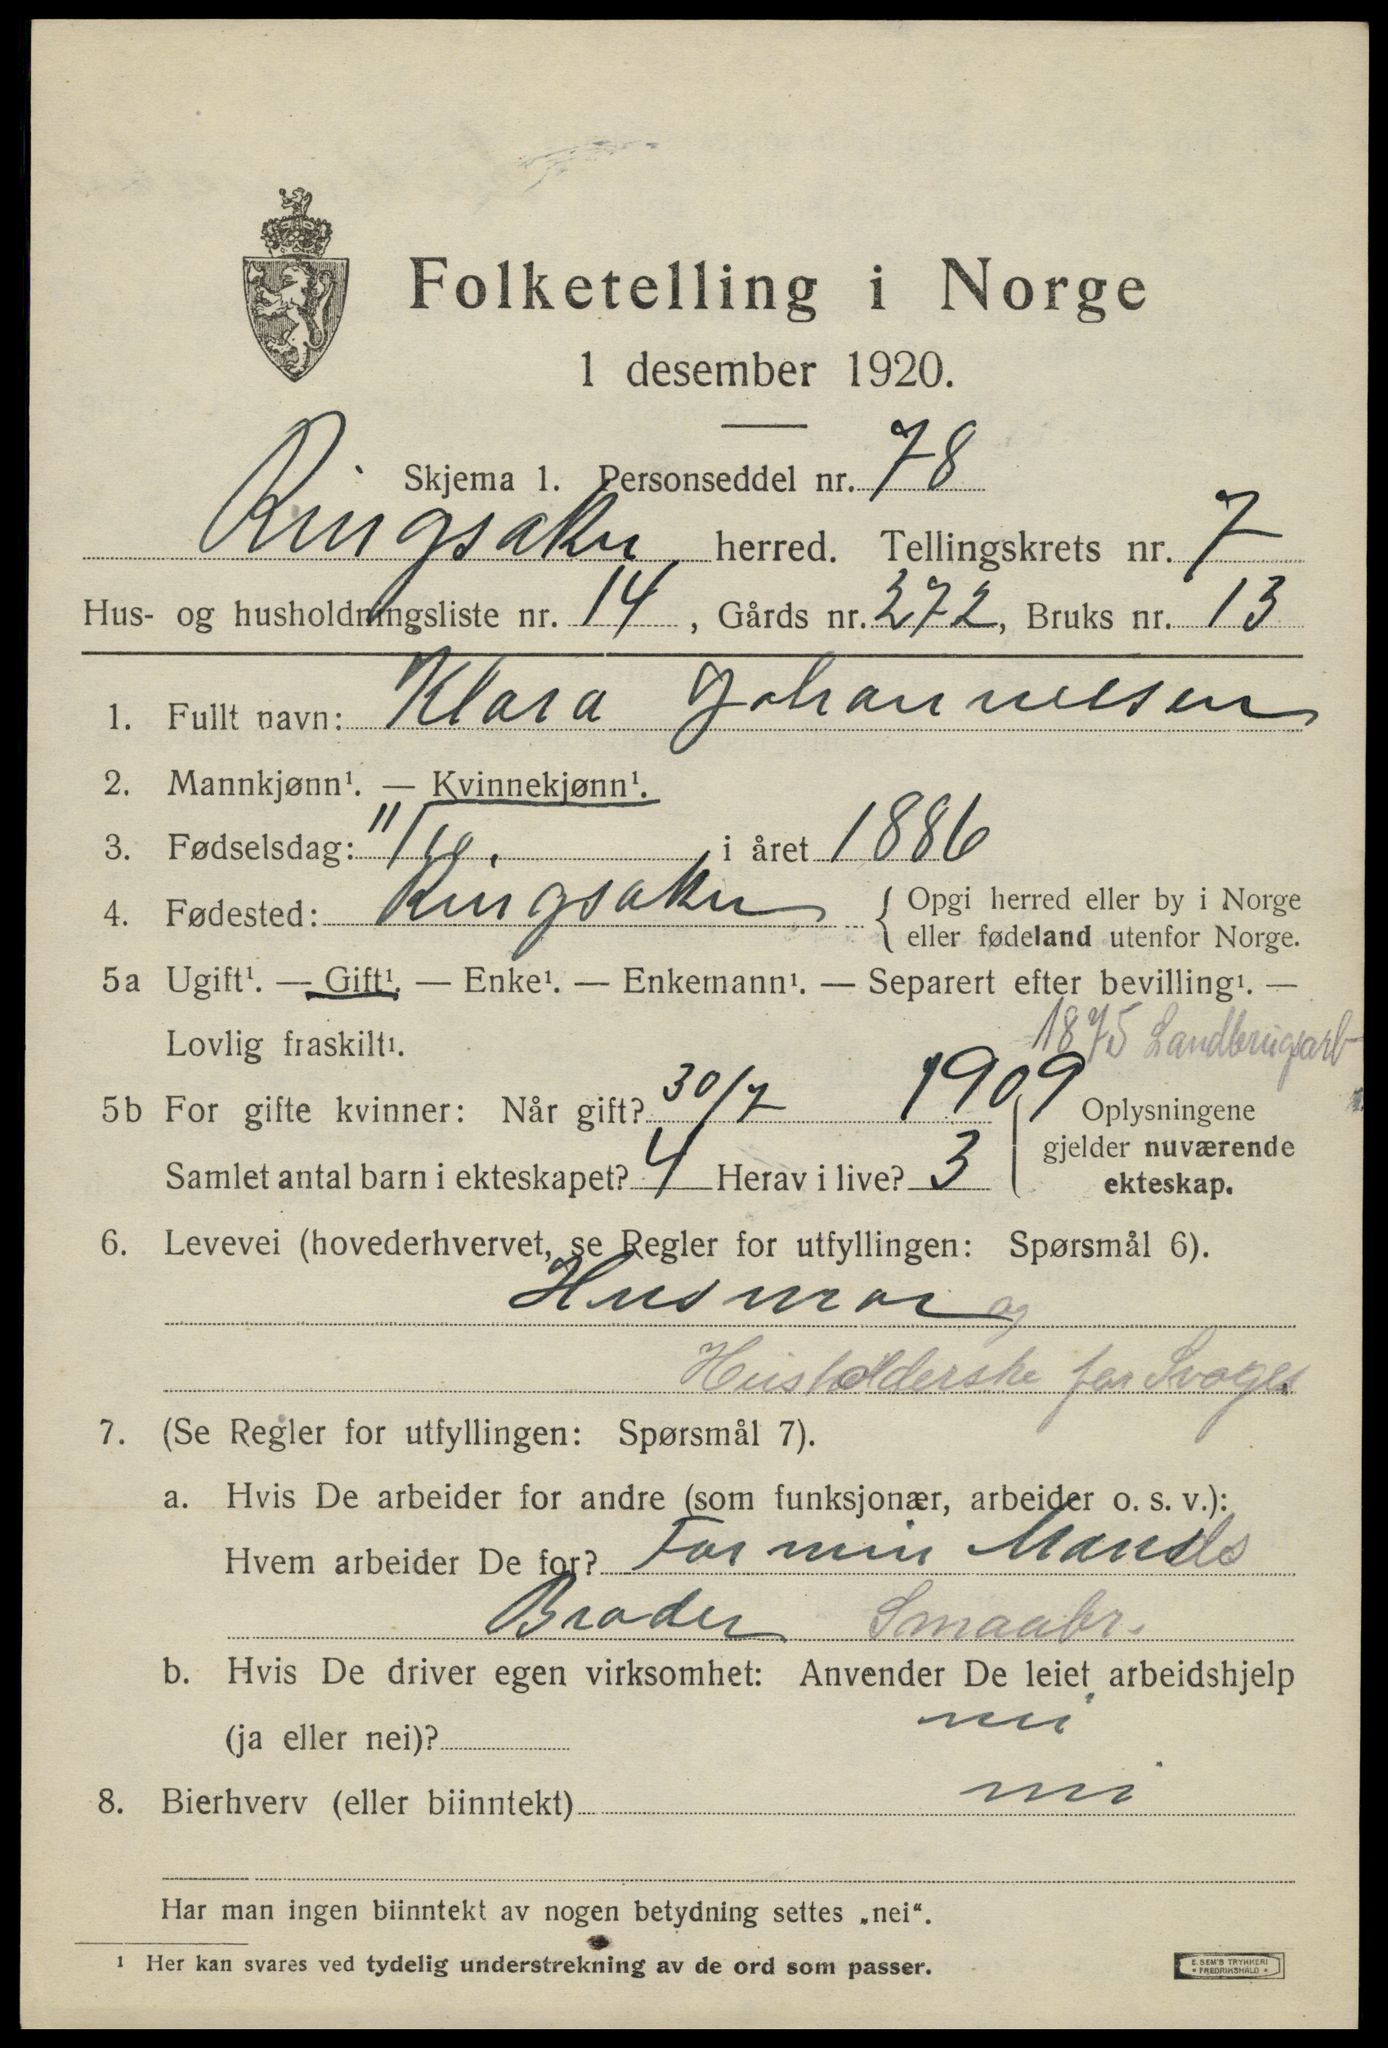 Folketelling i Norge
1 desember 1920.
Skjema 1. Personseddel nr. 78
Ringsaker herred. Tellingskrets nr. 7
Hus- og husholdningsliste nr. 14, Gårds nr. 272, Bruks nr. 13
1. Fullt navn: Klara Johannesen
2. Mannkjønn¹. — Kvinnekjønn¹.
3. Fødselsdag: 11/10. i året 1886
4. Fødested: Ringsaker { Opgi herred eller by i Norge
eller fødeland utenfor Norge.
5a Ugift¹. — Gift¹. — Enke¹. — Enkemann¹. — Separert efter bevilling¹. —
Lovlig fraskilt¹. 1875 Landbrugsarb
5b For gifte kvinner: Når gift? 30/7 1909 Oplysningene
gjelder nuværende
Samlet antal barn i ekteskapet? 4 Herav i live? 3 ekteskap.
6. Levevei (hovederhvervet, se Regler for utfyllingen: Spørsmål 6).
Husmor og
Husholderske for Svoger
7. (Se Regler for utfyllingen: Spørsmål 7).
a. Hvis De arbeider for andre (som funksjonær, arbeider o. s. v.):
Hvem arbeider De for? For min Mands
Broder Smaabr.
b. Hvis De driver egen virksomhet: Anvender De leiet arbeidshjelp
(ja eller nei)? nei
8. Bierhverv (eller biinntekt) nei
Har man ingen biinntekt av nogen betydning settes „nei“.
¹ Her kan svares ved tydelig understrekning av de ord som passer.
E. SEM'S TRYKKERI
* FREDRIKSHALD *